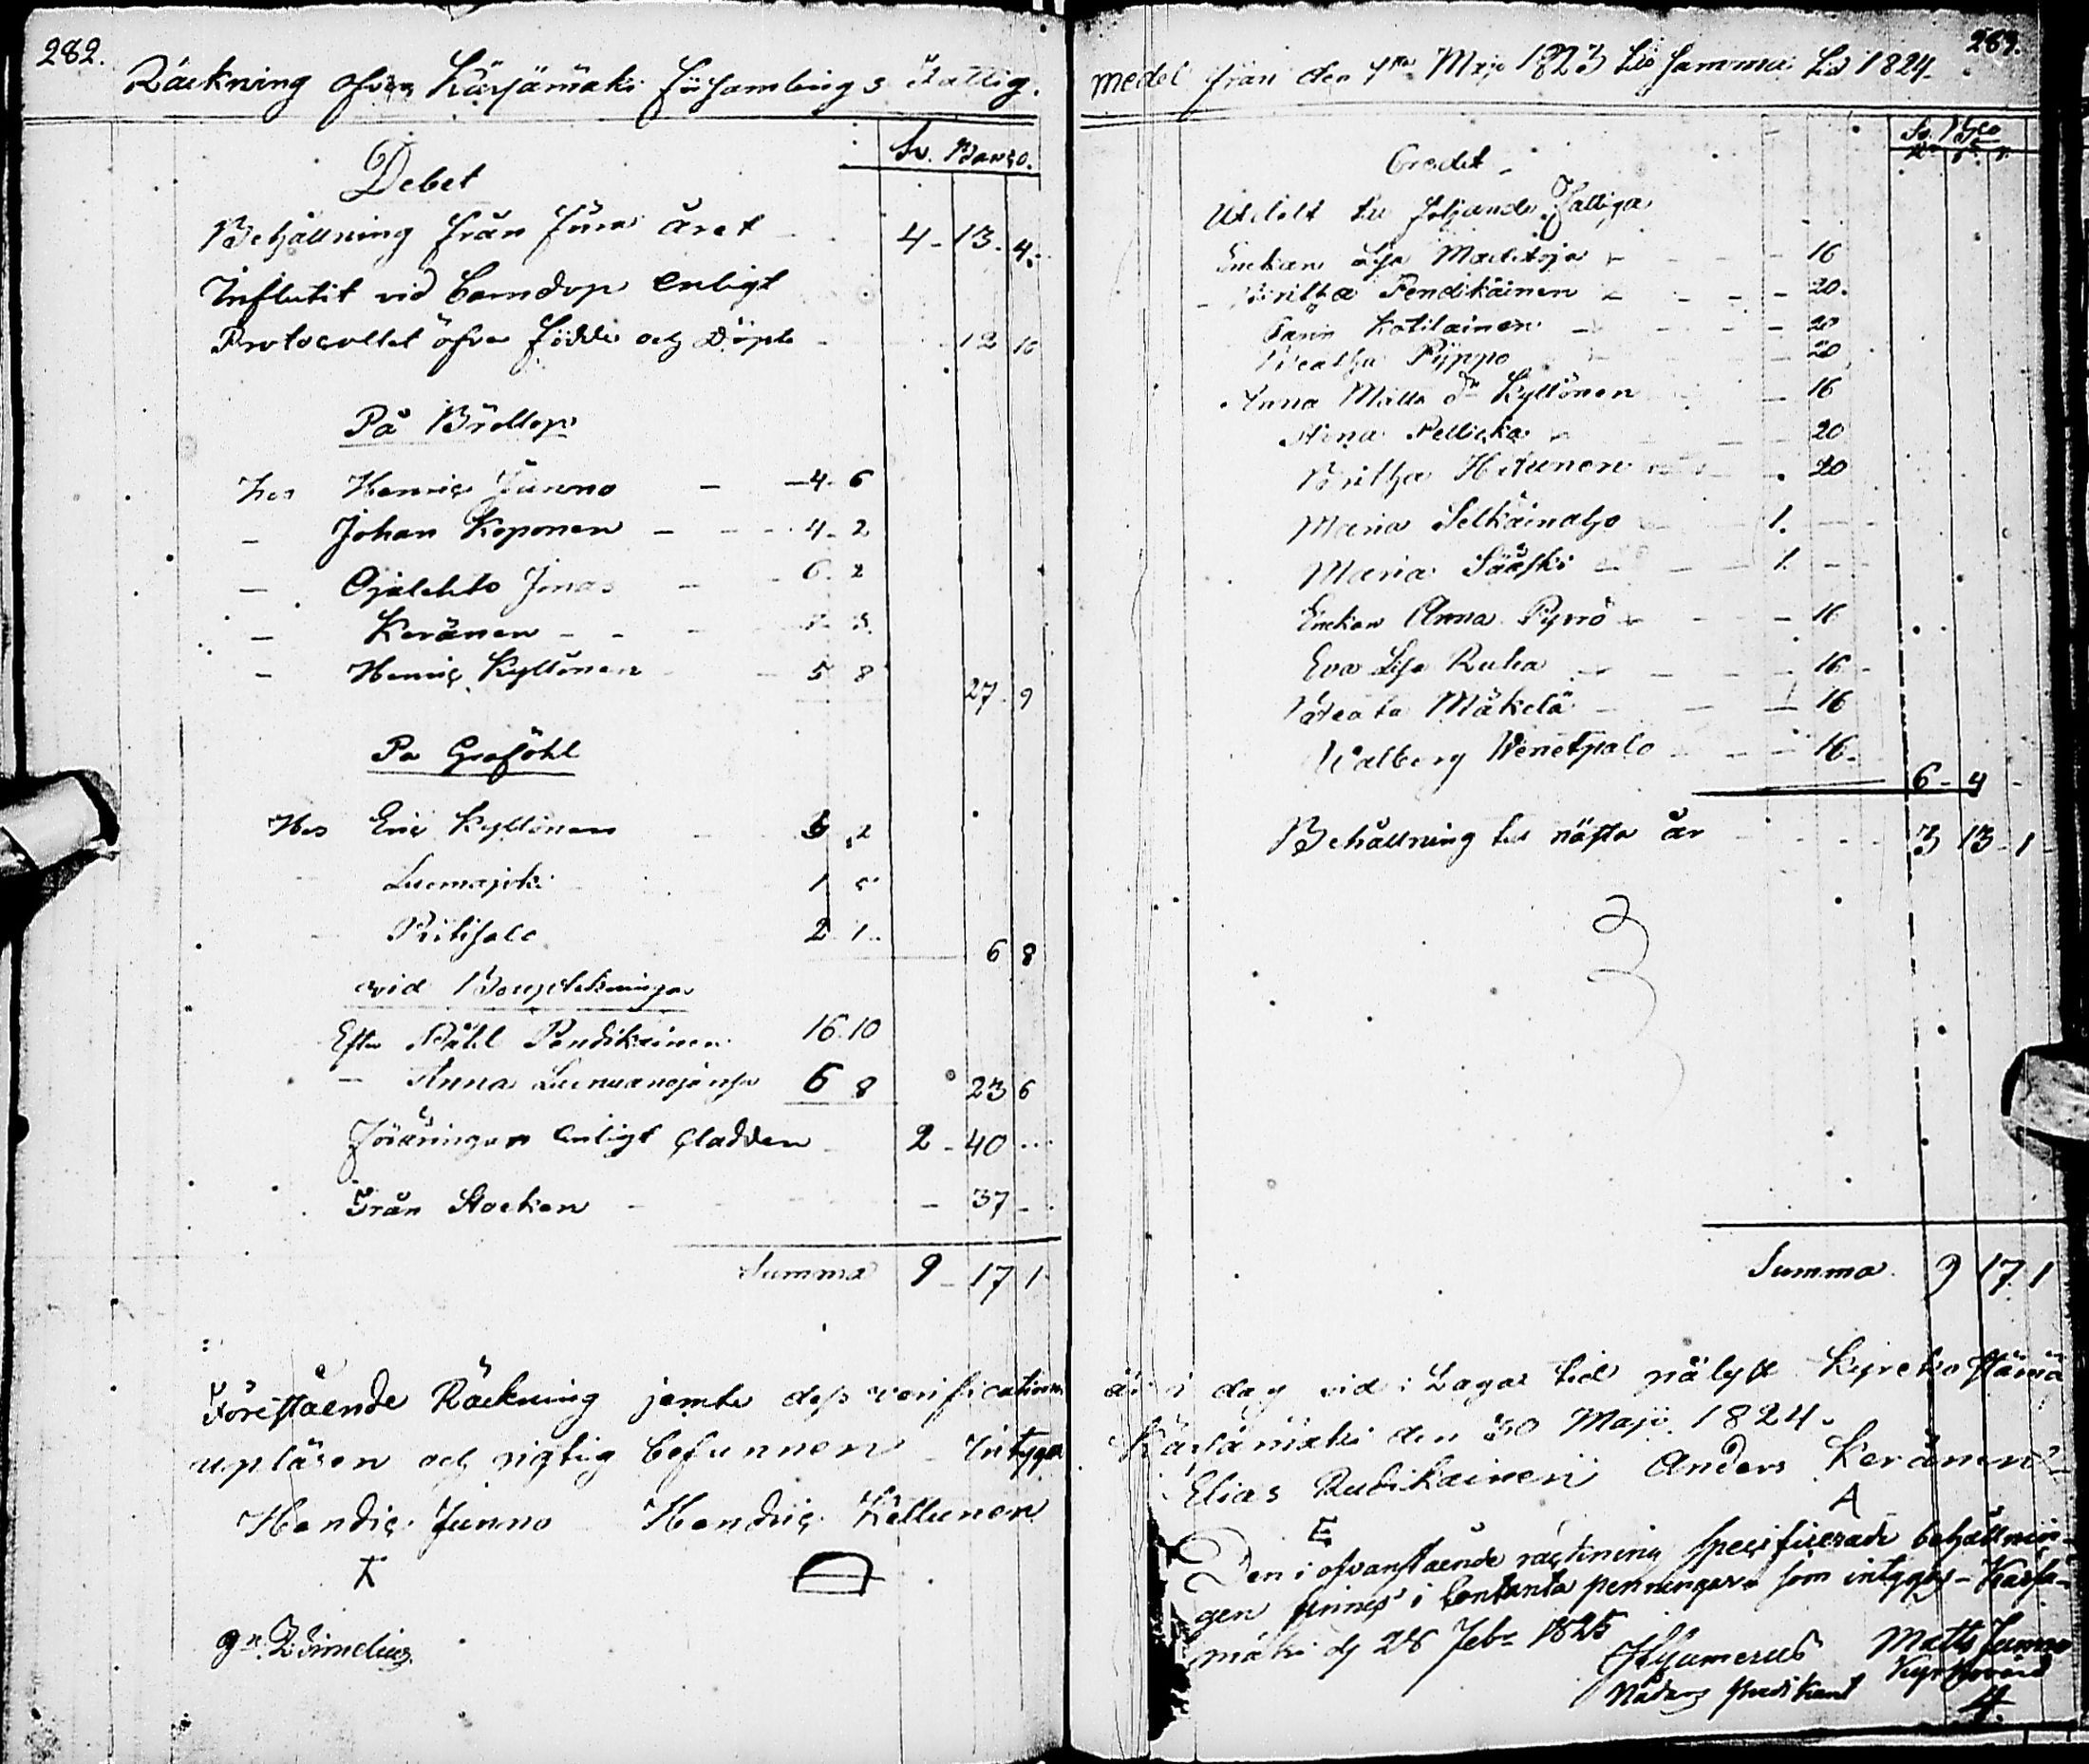 282.
Räckning öfver Kärsämäki församlings fattig.
Sv. Banco.
Debet
Behållning från förra året 4 - 13. 4.
Influtit vid barndop enligt
Protocollet öfver födde och döpte - 12 10
På Bröllop
hos Henric Junno - - 4. 6
- Johan Koponen - - - 4. 2
- Ojalehto Jonas - - 6. 2
- Keränen - - -
- Henric Kyllönen - 5 8
27. 9
På Graföhl
Hos Eric Kyllönen 2
Luomajoki 1
Pitisalo 2. 1.
6 8
vid Bouptekningar
Efter Påhl Pendikäinen 16. 10
- Anna 6 8 23 6
Föräringar enligt Cladden 2 - 40 ...
Från Stocken - - 37 -
Summa 9 - 17 1
Förestående Räckning jemte dess verification
upläsen och rigtig befunnen Intygar
Hendic Junno Hendric Kellunen
gn.
283.
medel från den 1sta Maji 1823 til samma tid 1824.
Sv. Bco
Rd. s. r.
Credit.
Utdelt til följande Fattiga
Enckan Lisa Madetoja - - - 16
- Britha Pendikäinen - - - - 20.
Carin Kotilainen - - - - 20
Beatha Pyppo - 20
Anna Matts dr Kyllönen - 16
Stina Pellicka - 20
Britha Hitunen - . 20
Maria Selkäinaho 1. -
Maria Sääski - - - 1. -
Enckan Anna Pyrrö - - - 16
Eva Lisa Ruha - - - 16 -
Beata Mäkelä - - - 16
Walberg Wenetpalo - - - 16.
6 - 4 -
Behållning til nästa år - - - - 3 13 - 1
Summa. 9 17. 1
är i dag vid i Laga tid pålyst Kyrckostämma
Kärsämäki den 30 Maji 1824.
Elias Rudikainen Anders Keränen
E A
Den i ofvanstående räckning specificerade behållnin-
gen finnes i Contanta penningar, som intygas - Kärsä-
mäki d 26 Febr 1825
Matts Junno
Nådårs Predikant Kyrkovärd